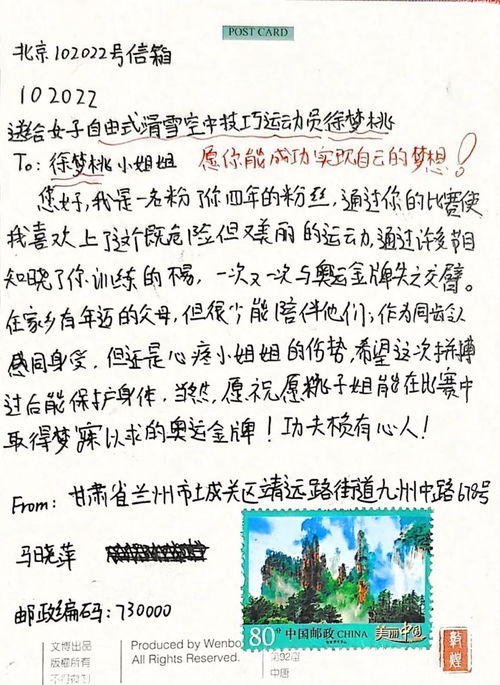 POST CARD
北京102022号信箱
102022
送给女子自由式滑雪空中技巧运动员徐梦桃
To: 徐梦桃小姐姐 愿你能成功实现自己的梦想!
您好,我是一名粉了你四年的粉丝,通过你的比赛使
我喜欢上了这个既危险但又美丽的运动,通过许多节目
知晓了你训练的伤,一次又一次与奥运金牌失之交臂。
在家乡有年迈的父母,但很少能陪伴他们;作为同龄人
感同身受,但还是心疼小姐姐的伤势,希望这次拼搏
过后能保护身体,当然,愿祝愿桃子姐能在比赛中
取得梦寐以求的奥运金牌!功夫不负有心人!
From: 甘肃省兰州市城关区靖远路街道九州中路678号
马晓萍
邮政编码:730000
80分 中国邮政 CHINA 美丽中国
敦煌
文博出品
版權所有
Produced by Wenbo
All Rights Reserved.
第92窟
中唐